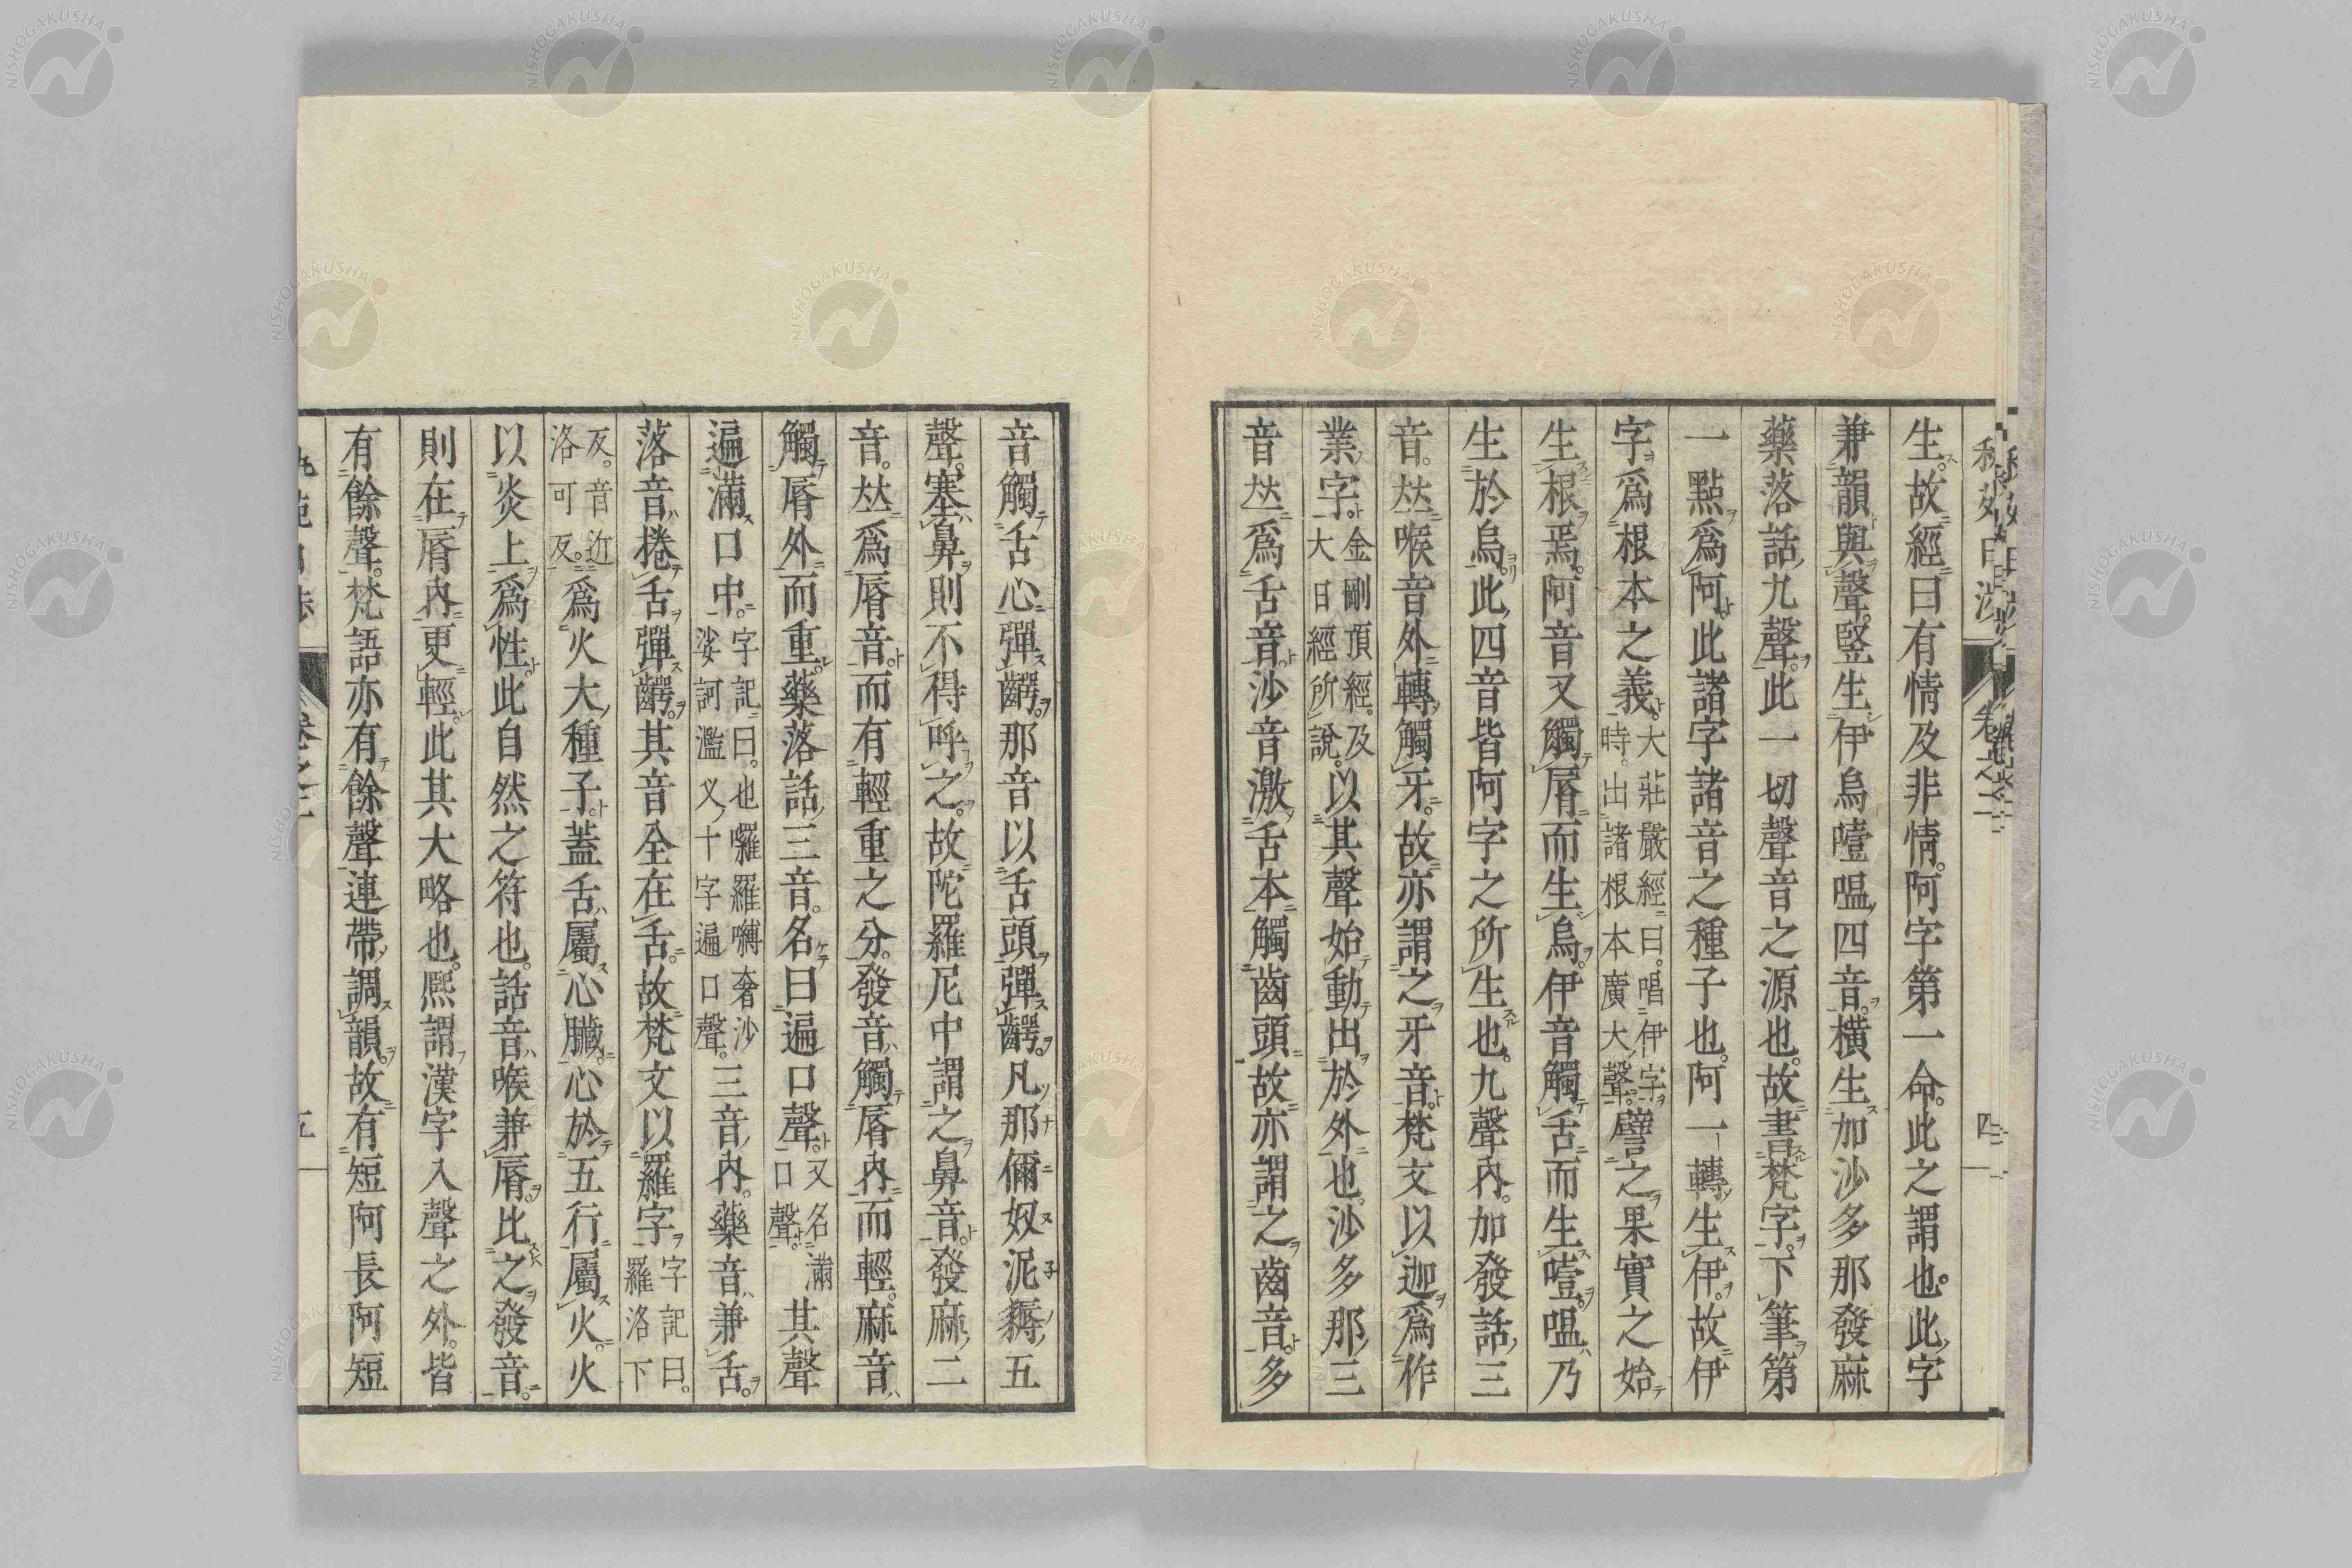 生故經曰有情及非情阿字第一命此之謂也此字
兼韻與聲竪生伊烏噎嗢四音橫生加沙多那發麻
藥落話九聲此一切聲音之源也故書梵字下筆第
一點爲阿此諸字諸音之種子也阿一轉生伊故伊
字爲根本之義大莊嚴經曰唱伊字時出諸根本廣大聲譬之果實之始
生根焉阿音又觸脣而生烏伊音觸舌而生噎嗢乃
生於烏此四音皆阿字之所生也九聲內加發話三
音𠀋喉音外轉觸牙故亦謂之牙音梵文以迦爲作
業字金剛頂經及大日經所說以其聲始動出於外也沙多那三
音𠀋爲舌音沙音激舌本觸齒頭故亦謂之齒音多
音觸舌心彈齶那音以舌頭彈齶凡那儞奴泥耨五
聲塞鼻則不得呼之故陀羅尼中謂之鼻音發麻二
音𠀋爲脣音而有輕重之分發音觸脣內而輕麻音
觸脣外而重藥落話三音名曰遍口聲又名滿口聲其聲
遍滿口中字記曰也囉羅嚩奢沙娑訶濫叉十字遍口聲三音內藥音兼舌
落音捲舌彈齶其音全在舌故梵文以羅字字記曰羅洛下
反音近洛可反爲火大種子蓋舌屬心臟心於五行屬火火
以炎上爲性此自然之符也話音喉兼脣比之發音
則在脣內更輕此其大略也熙謂漢字入聲之外皆
有餘聲梵語亦有餘聲連帶調韻故有短阿長阿短
NISHOGAKUSHA